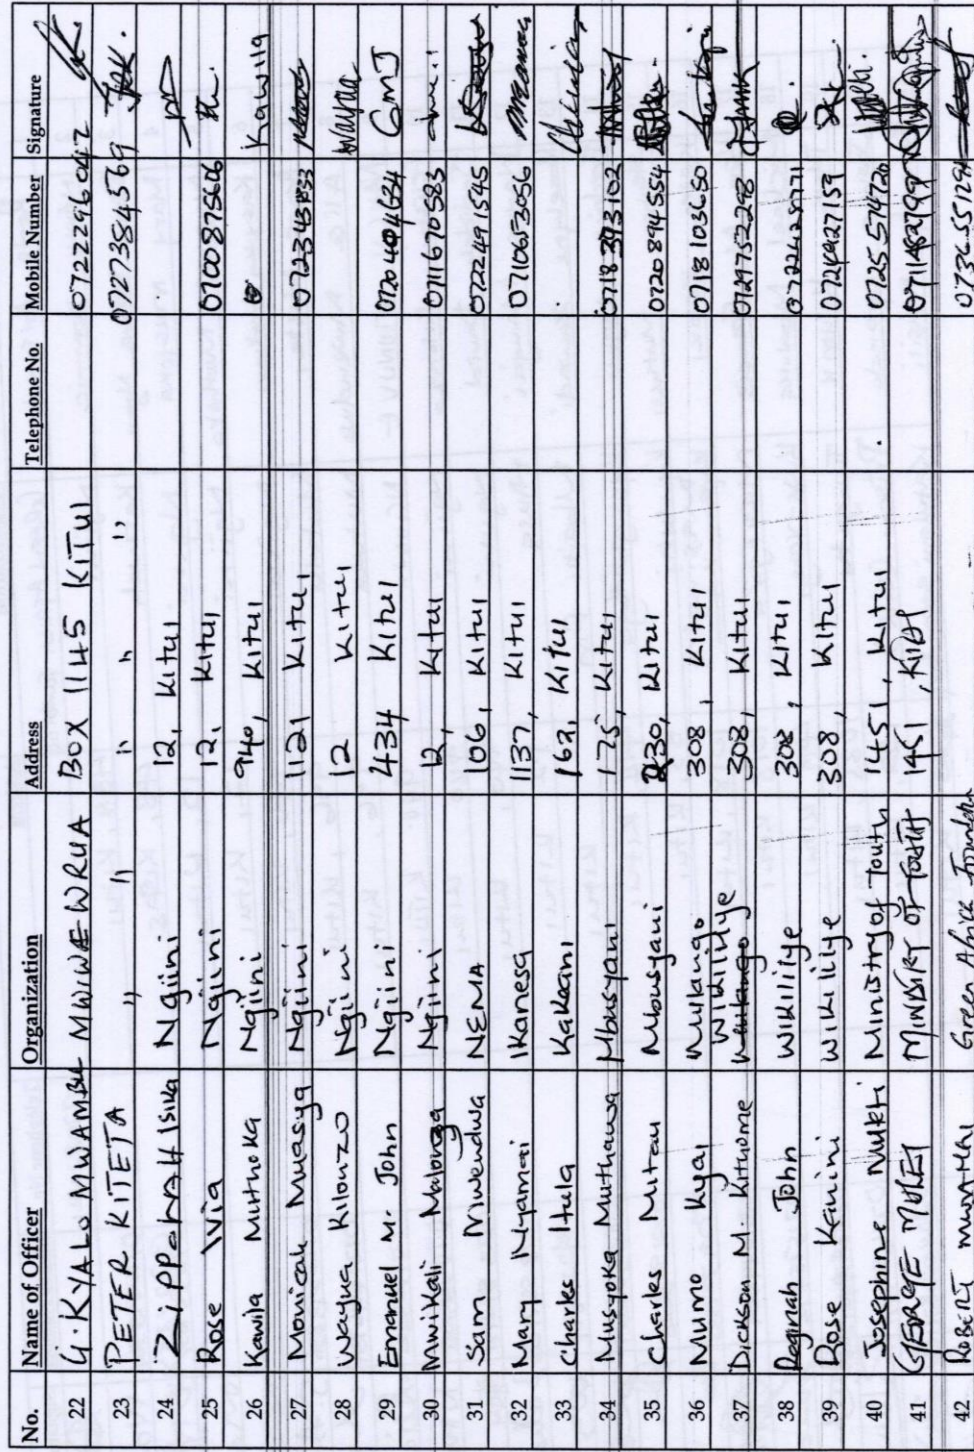 No. Name of Officer Organization Address Telephone No. Mobile Number Signature
22 G. KYALO MWAMBU MWIWAEWRUA BOX 1145 KITUI 0722296042
23 PETER KITETA " " " " " 0727384569
24 ZIPPORAH ISIKA Ngiini 12, Kitui
25 Rose Nia Ngiini 12, Kitui 0700875606
26 Kawila Muthoka Ngiini 940, Kitui Kawila
27 Monicah Muasya Ngiini 1121 Kitui
28 Wayua Kilonzo Ngiini 12 Kitui Wayua
29 Emanuel M. John Ngiini 434 Kitui 0720404634 GMJ
30 Mwikali Malonza Ngiini 12, Kitui 0711670583
31 Sam Mwendwa NEMA 106, Kitui 0722491545
32 Mary Nyamai Ikanesa 1137, Kitui 0710653056
33 Charles Itula Kakeani 162, Kitui
34 Musyoka Muthawa Mbusyani 175, Kitui 0718393102
35 Charles Mutau Mbusyani 230, Kitui 0720894554
36 Mumo Kyai Mulango 308, Kitui 0718103650
37 Dickson M. Kithome Wikililye 308, Kitui 0729752298
38 Reginah John Wikililye 308, Kitui
39 Rose Kavini Wikililye 308, Kitui
40 Josephine Mukthi Ministry of Youth 1451, Kitui 0725574720
41 GEORGE MULEI MINISTRY OF YOUTH 1451,
42 ROBERT Green Africa Foundation 0736551284